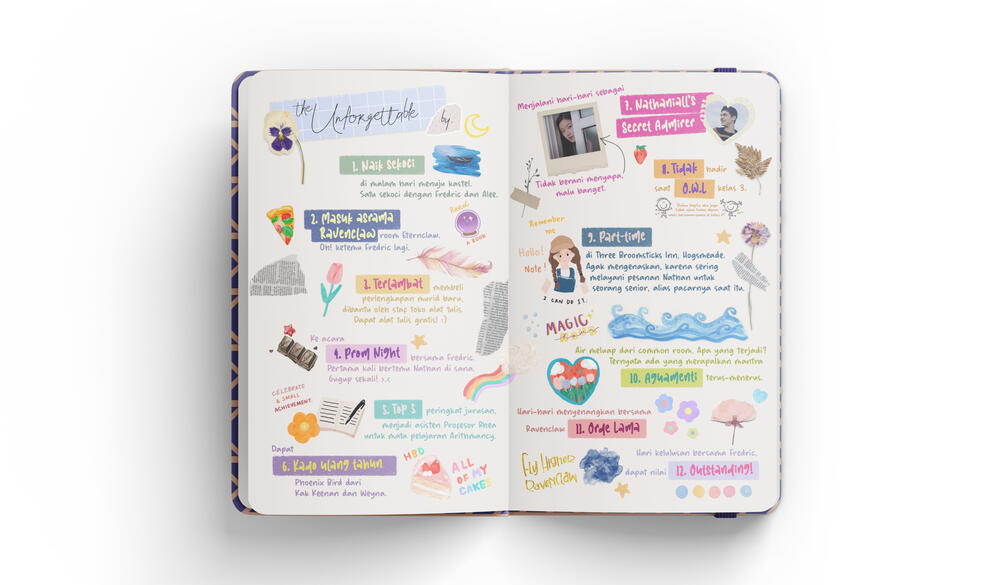 the Unforgettable by.
1. Naik sekoci
di malam hari menuju kastel.
Satu sekoci dengan Fredric dan Alee.
2. Masuk asrama
Ravenclaw room Eternclaw.
Oh! ketemu Fredric lagi.
Read
A BOOK
3. Terlambat membeli
perlengkapan murid baru,
dibantu oleh staf toko alat tulis.
Dapat alat tulis gratis! :)
Ke acara
4. Prom Night bersama Fredric.
Pertama kali bertemu Nathan di sana.
Gugup sekali! >.<
CELEBRATE
A SMALL
ACHIEVEMENT.
5. Top 5 peringkat jurusan,
menjadi asisten Profesor Rhea
untuk mata pelajaran Arithmancy.
Dapat
6. Kado ulang tahun
Phoenix Bird dari
Kak Keenan dan Weyna.
HBD
ALL
OF MY
CAKES
Menjalani hari-hari sebagai
7. Nathaniall's
Secret Admirer
Tidak berani menyapa,
malu banget.
8. Tidak hadir
saat O.W.L kelas 3.
Remember
me
Hello!
Note!
I CAN DO IT.
9. Part-time
di Three Broomsticks Inn, Hogsmeade.
Agak mengenaskan, karena sering
melayani pesanan Nathan untuk
seorang senior, alias pacarnya saat itu.
MAGIC
Air meluap dari common room. Apa yang terjadi?
Ternyata ada yang merapalkan mantra
10. Aguamenti terus-menerus.
Hari-hari menyenangkan bersama
Ravenclaw 11. Orde Lama
Fly Higher
Ravenclaw
Hari kelulusan bersama Fredric,
dapat nilai 12. Outstanding!